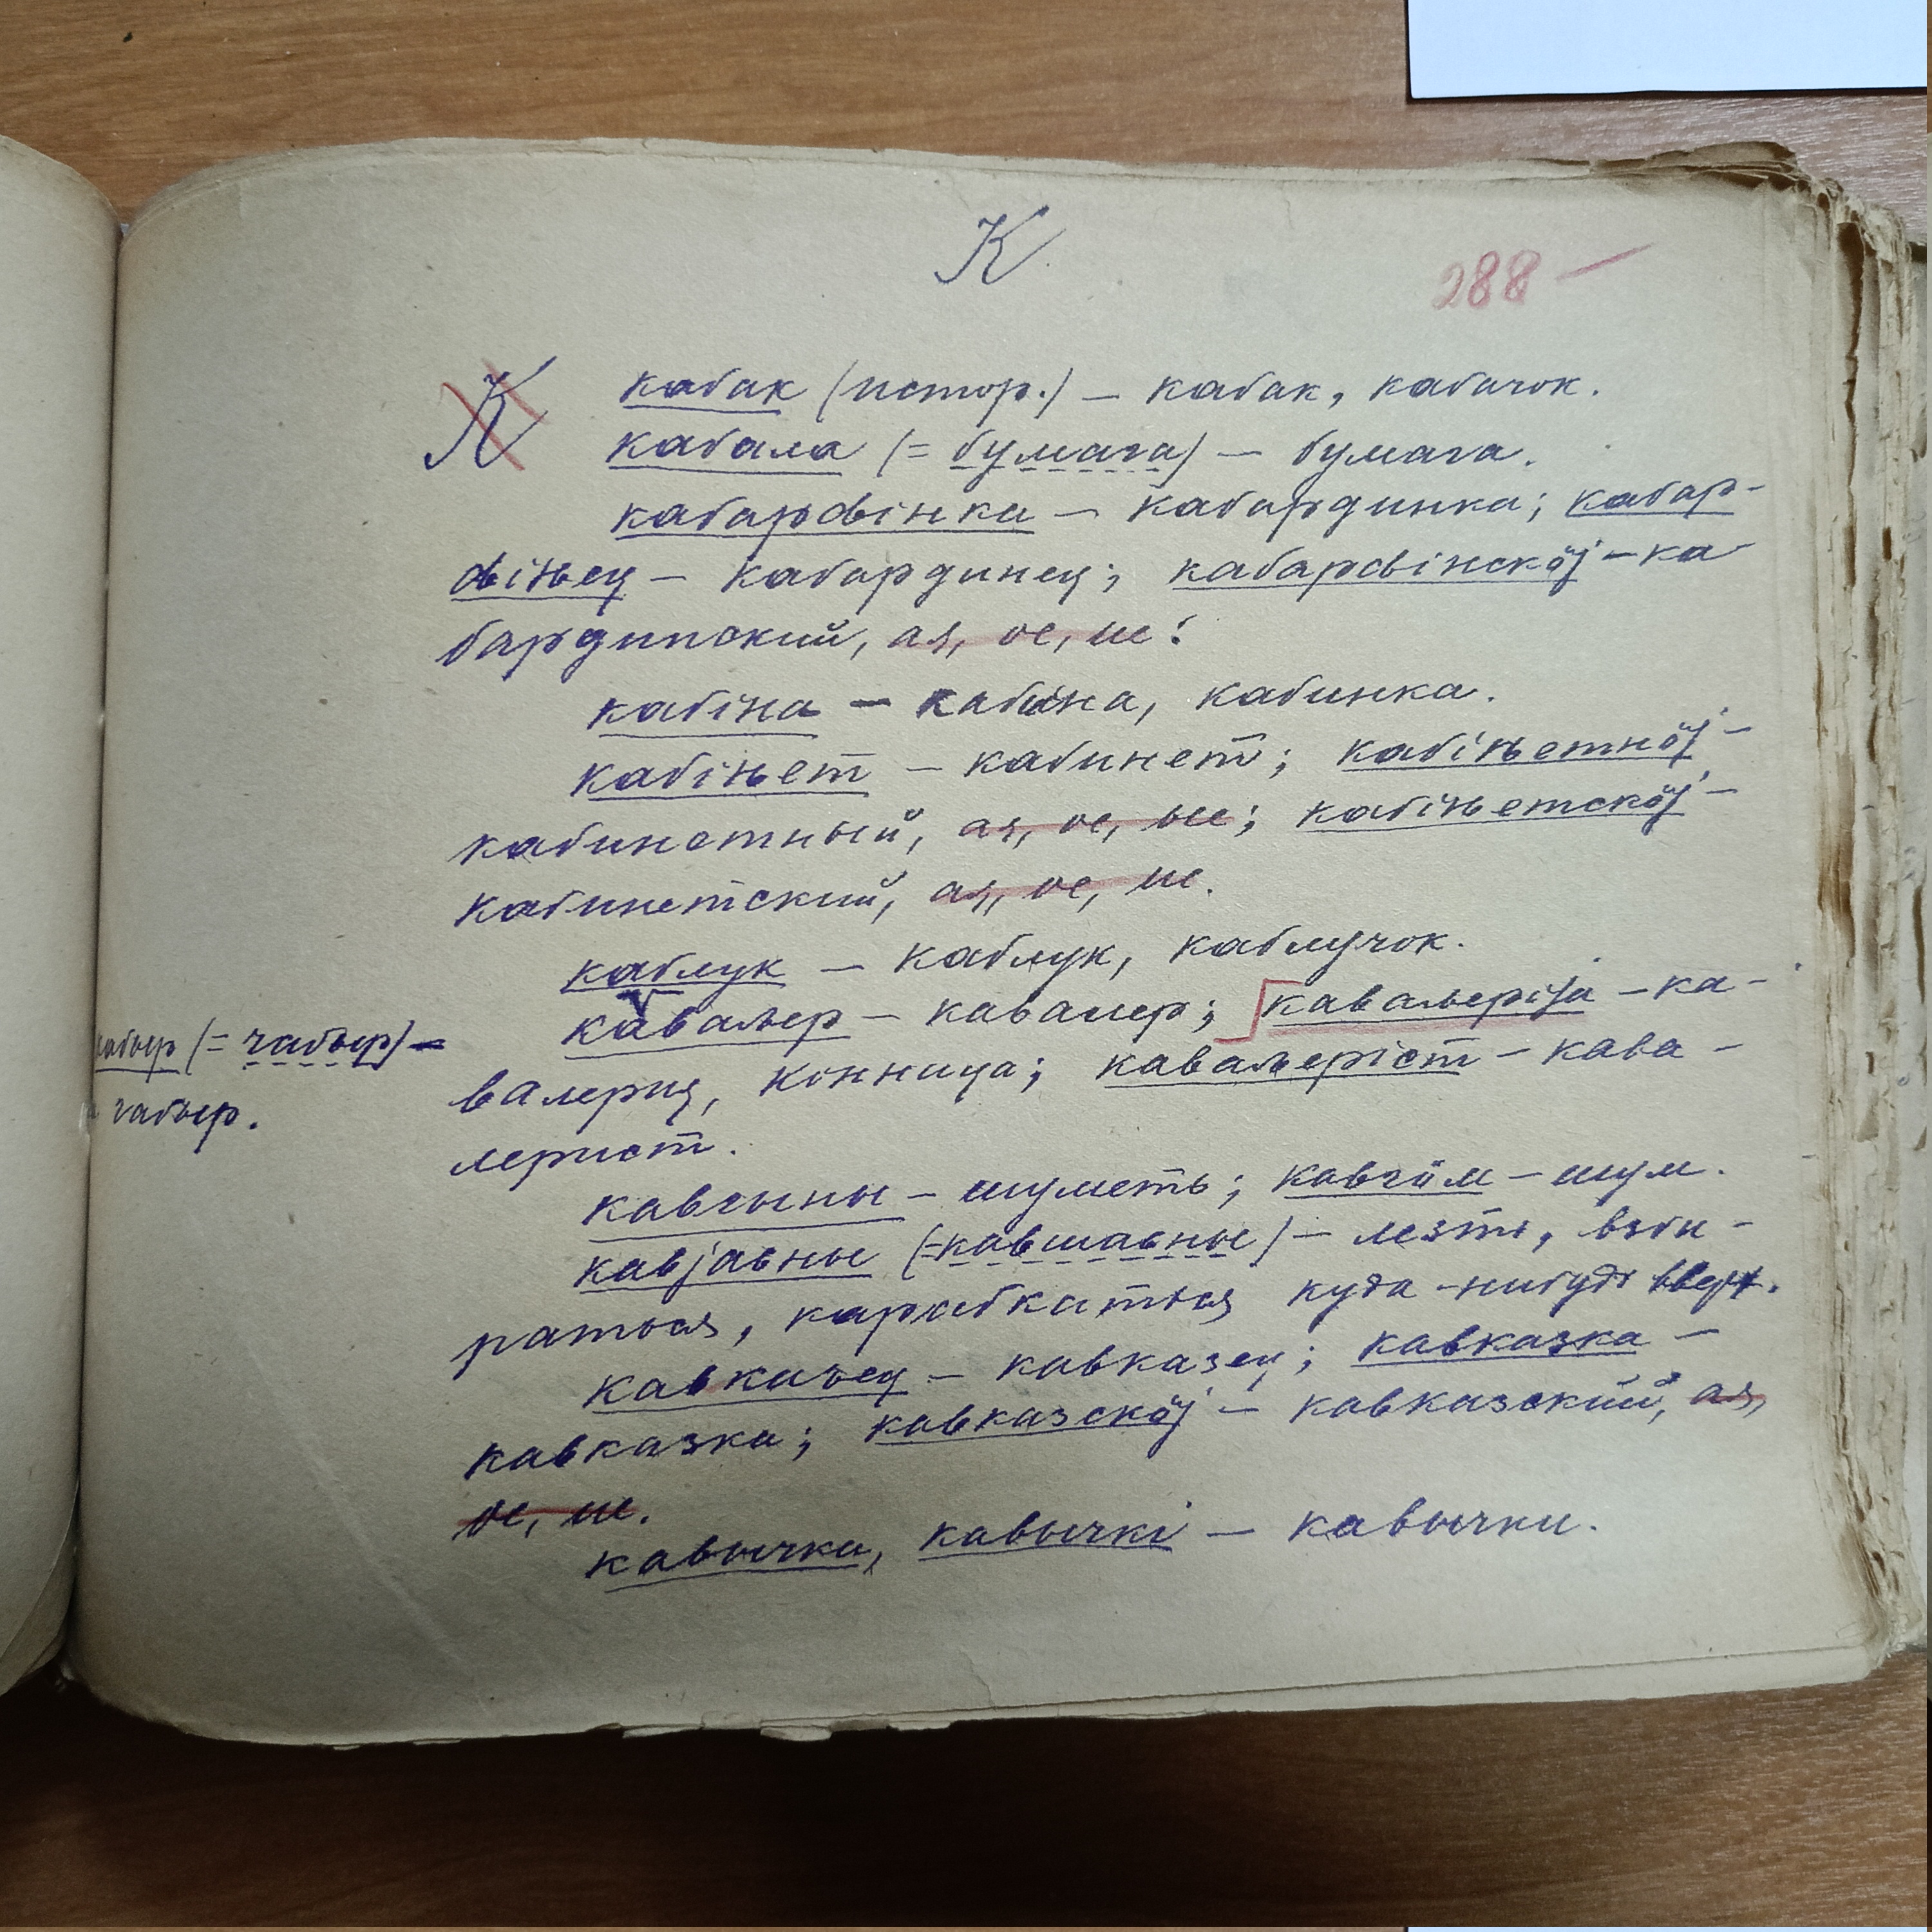 К
288 —
К кабак (истор.) — кабак, кабачок.
кабала (= бумага) — бумага.
кабарԁінка — кабардинка; кабар-
ԁіԋец — кабардинец; кабарԁінскӧј — ка
бардинский, ая, ое, ие.
кабіна — кабина, кабинка.
кабіԋет — кабинет; кабіԋетнӧј —
кабинетный, ая, ое, ые; кабіԋетскӧј —
кабинетский, ая, ое, ие.
каблук — каблук, каблучок.
каваԉер — кавалер; каваԉеріја — ка-
валерия, конница; каваԉеріст — кава-
лерист.
(= чабыр) —
чабыр.
кавгыны — шуметь; кавгӧм — шум.
кавјавны (= кавшавны) — лезть, взби-
раться, карабкаться куда-нибудь вверх.
кавказец — кавказец; кавказка —
кавказка; кавказскӧј — кавказский, ая,
ое, ие.
кавычка, кавычкі — кавычки.